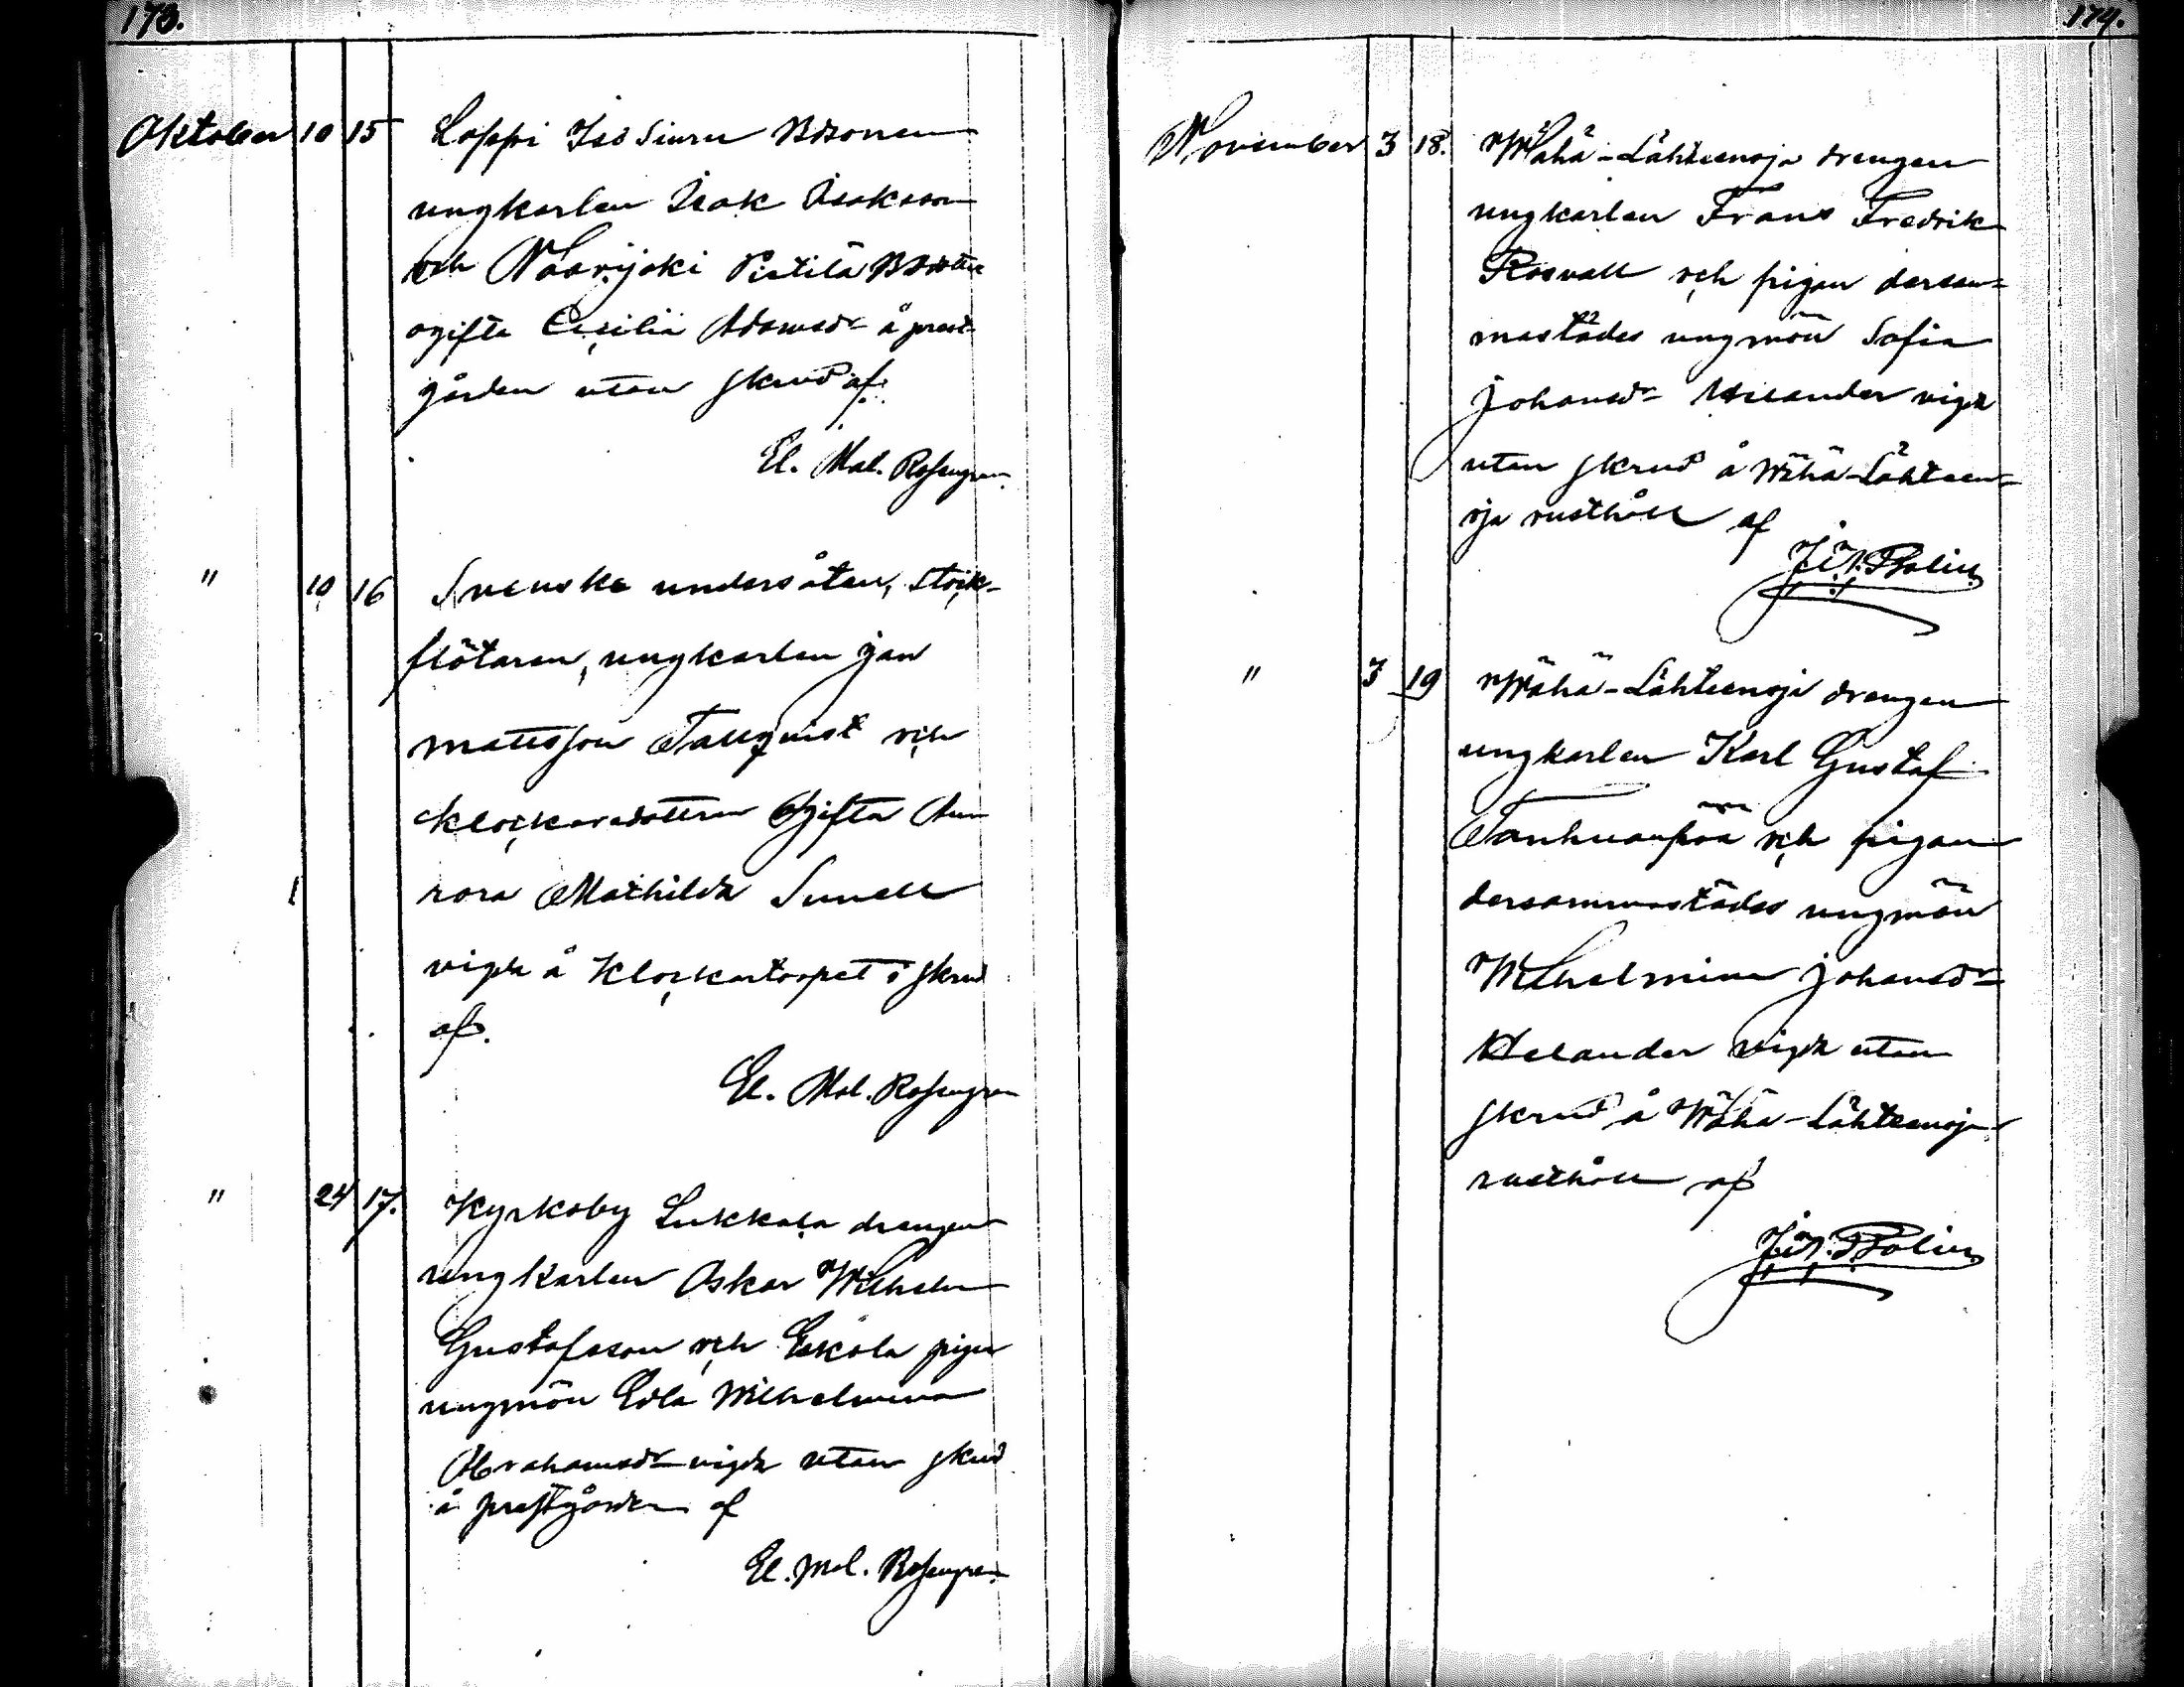 173.
Oktober 10 15 Loppi Iso Siuru Bdsonen
ungkarlen Isak Isaksson
och Naarijoki Pietilä Bdottre
ogifta Cecilia Adamsdr å prest
gården utan skrud af
El. Mal. Rosengren
" 10 16 Svenske undersåten, stock-
flötaren, ungkarlen Jan
Mattsson Tallqvist och
klockaredottren ogifta Au
rora Mathilda Sunell
vigda å Klockartorpet i skrud
af.
El. Mal. Rosengren
" 24 17. Kyrkoby Lukkala drengen
ungkarlen Oskar Wilhelm
Gustafsson och Eskola pigan
ungmön Edla Wilhelmina
Abrahamsdr vigda utan skrud
å prestgården af
El. Mal. Rosengren
174.
November 3 18. Wähä-Lähteenoja drengen
ungkarlen Frans Fredrik
Rosvall och pigan dersam=
mastädes ungmön Sofia
Johansdr Helander vigda
utan skrud å Wähä-Lähteen=
oja rusthåll af
Bolin
" 3 19 Wähä-Lähteenoja drengen
ungkarlen Karl Gustaf
Tanhuanpää och pigan
dersammastädes ungmön
Wilhelmina Johansdr
Helander vigda utan
skrud å Wähä-Lähteenoja
rusthåll af
Bolin